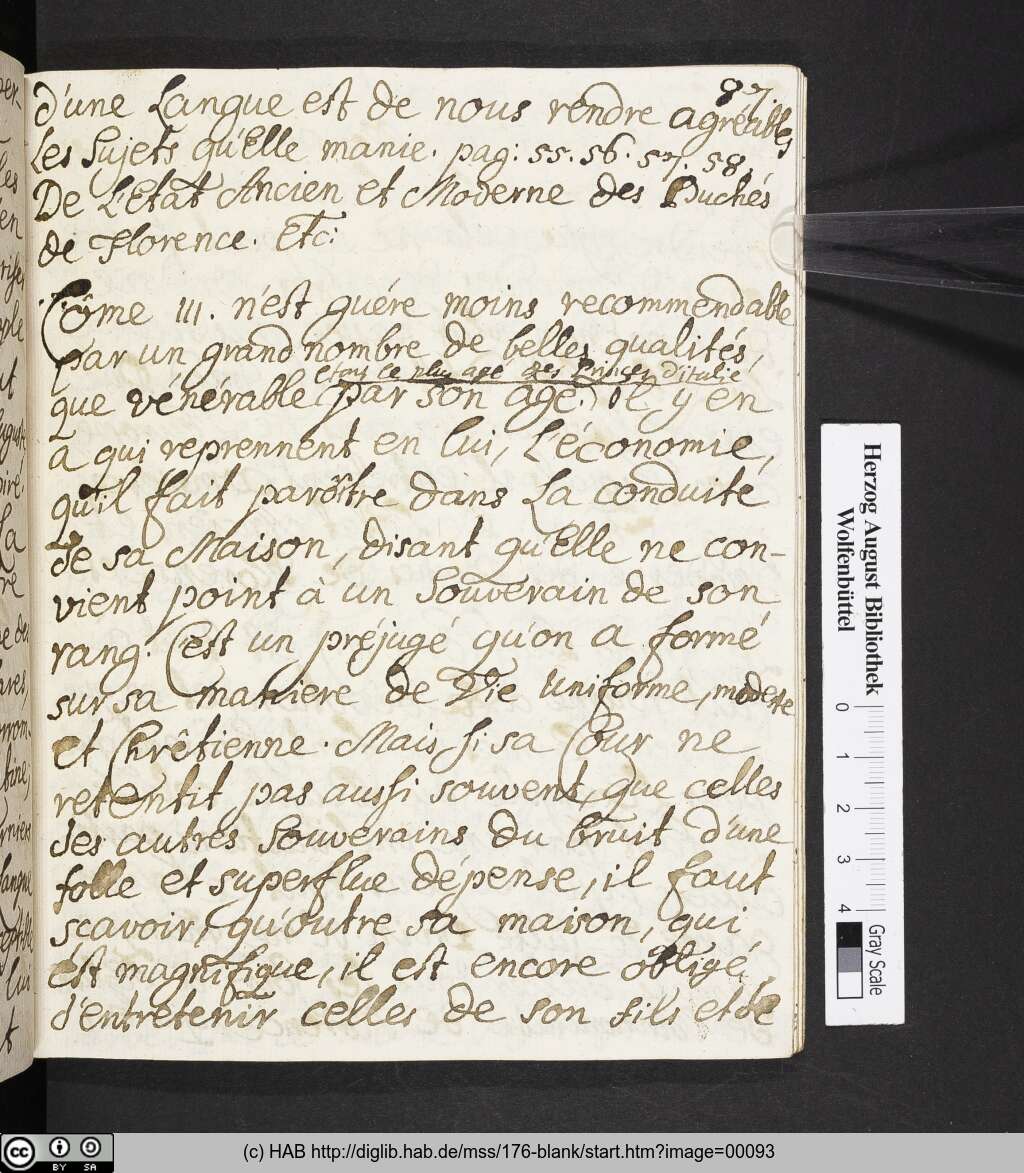 87
d'une Langue est de nous rendre agréables
Les Sujets qu'Elle manie. pag: 55. 56. 57. 58.
De L'Etat Ancien et Moderne des Duchés
de Florence. Etc:
Côme III. n'est guére moins recommendable
par un grand nombre de belles qualités,
etant le plus agé des Princes d'italie
que vénérable (par son age.) il y en
a qui reprennent en lui, L'économie,
qu'il fait parôitre dans La conduite
de sa Maison, disant qu'Elle ne con-
vient point à un Souverain de son
rang. C'est un préjugé qu'on a formé
sur sa maniere de Vie uniforme, modeste
et Chrêtienne. Mais si sa Cour ne
retentit pas aussi souvent, que celles
des autres Souverains du bruit d'une
folle et superflue dépense, il faut
scavoir, qu'outre sa maison, qui
est magnifique, il est encore obligé,
d'entretenir celles de son fils et de
per-
les
en
ple
ut
La
re
ne des
rom-
bine;
rniere
langue
lui
Herzog August Bibliothek
Wolfenbüttel
0 1 2 3 4
Gray Scale
cc BY SA
(c) HAB http://diglib.hab.de/mss/176-blank/start.htm?image=00093